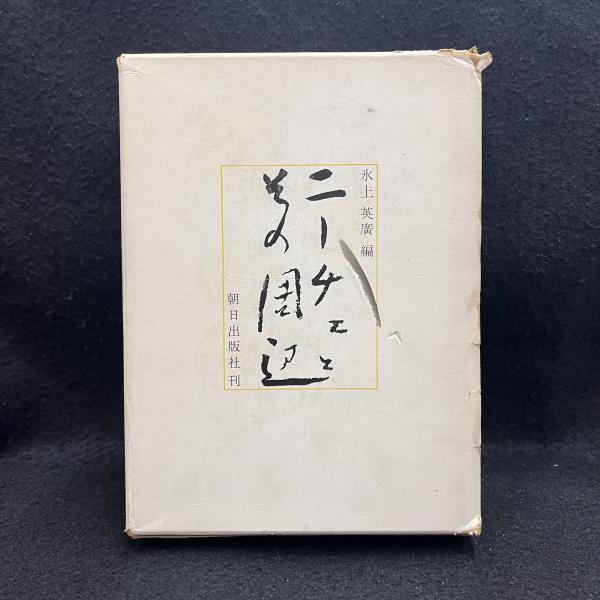 氷上 英廣 編
ニーチェと
その周辺
朝日出版社刊